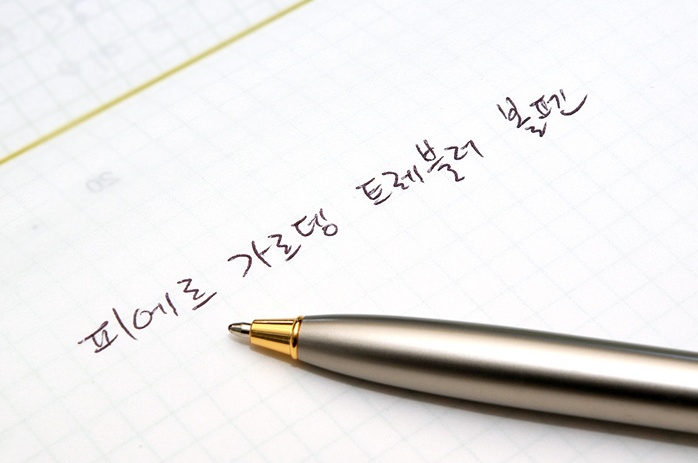 피에르 가르뎅 트레블러 볼펜